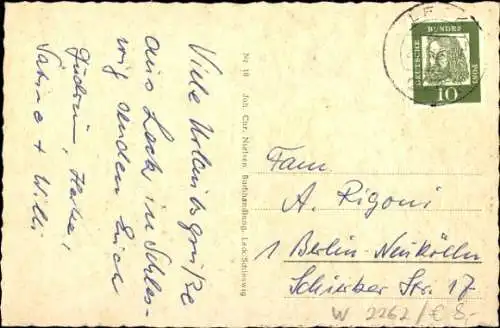 Viele Urlaubsgrüße
aus Leck in Schles-
wig senden Euch
Gudrun, Heike,
Sabine + Willi
Nr. 18 Joh. Chr. Nielsen Buchhandlung, Leck/Schleswig
LE
DEUTSCHE
BUNDES
POST
10
Fam.
A. Rigoni
1 Berlin-Neukölln
Schierker Str. 17
W 2262/€ 8,-